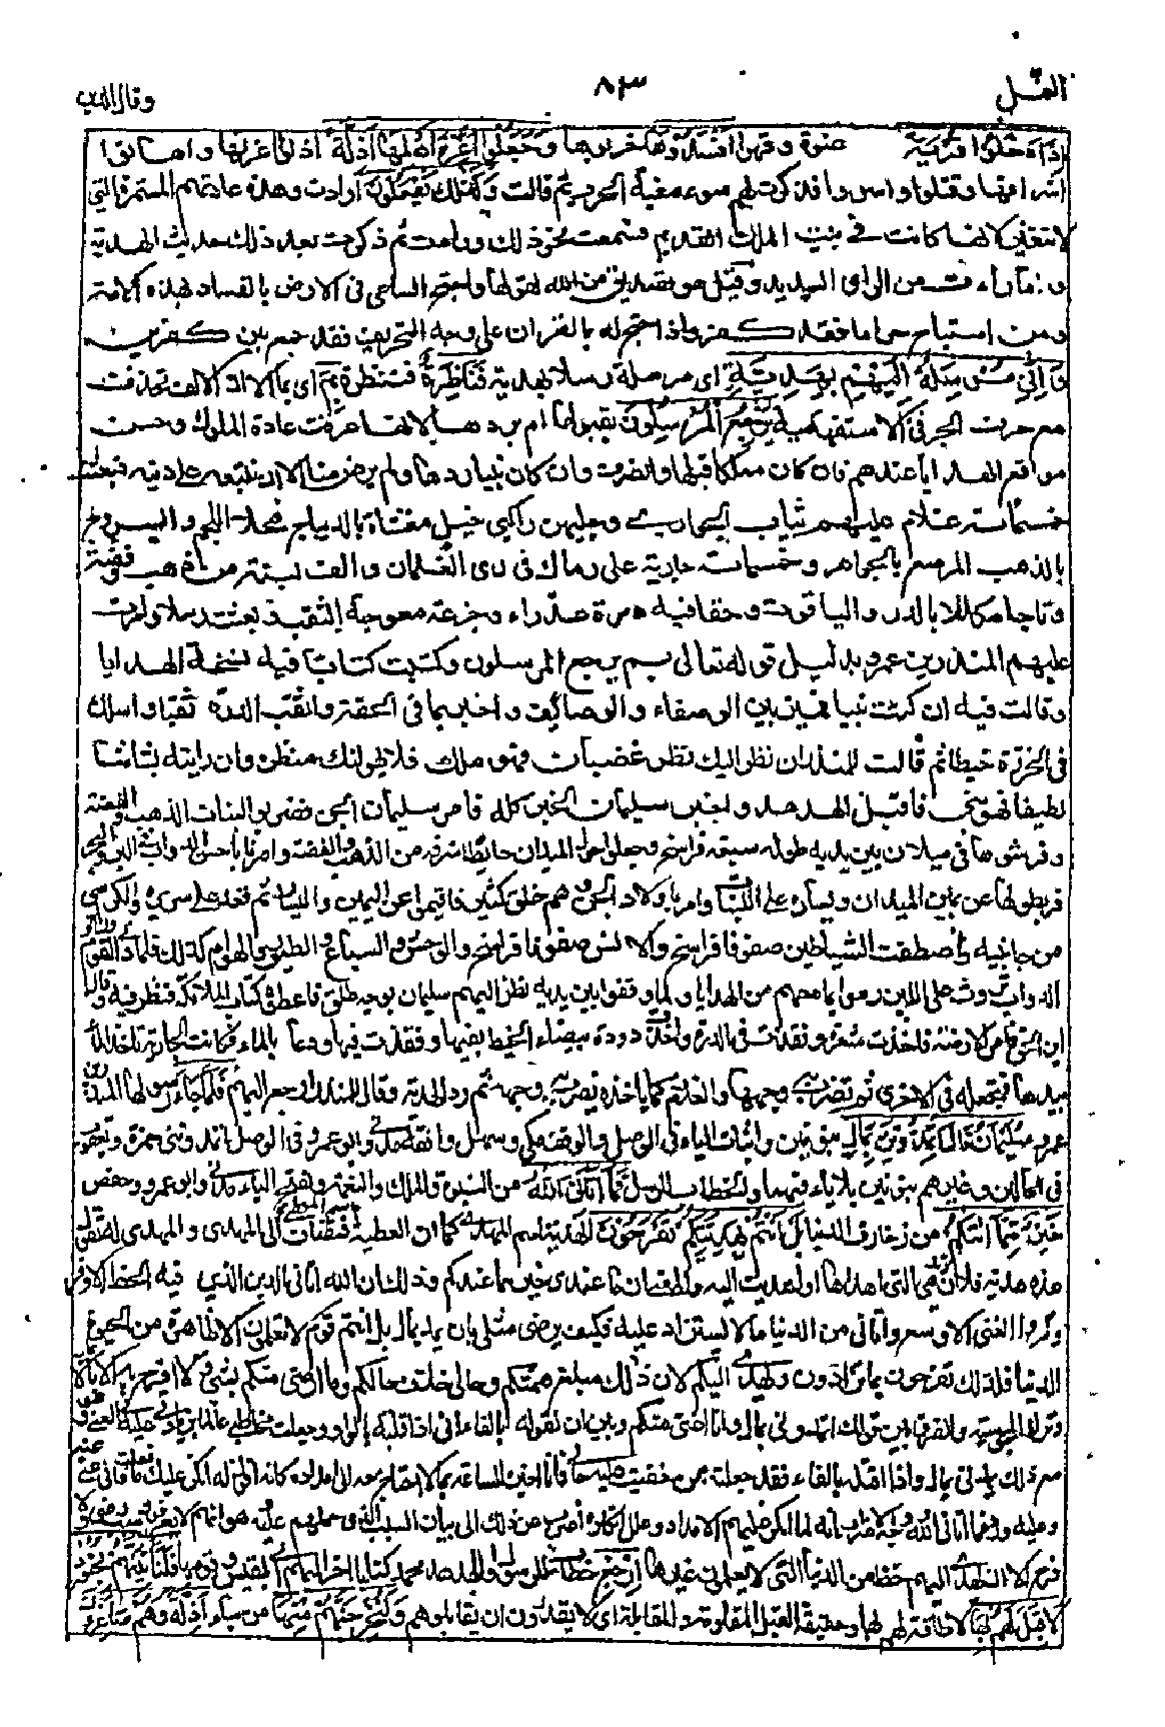 النمل ٨٣ وقال الذين
اذا دخلوا قرية عنوة وقهرا افسدوها خربوها وجعلوا اعزة اهلها اذلة اذلوا اعزتها واهانوا
اشرافها وقتلوا واسروا فذكرت لهم سوء مغبة الحرب ثم قالت وكذلك يفعلون ارادت وهذه عادتهم المستمرة التي
لا تتغير لانها كانت في بيت الملك القديم فسمعت نحو ذلك ورأت ثم ذكرت بعد ذلك حديث الهدية
وما رأت من الراى السديد وقيل هو تصديق من الله لقولها واحتج الساعى فى الارض بالفساد بهذه الآية
ومن استباح حراما فقد كفر واذا احتج له بالقران على وجه التحريف فقد جمع بين كفرين
وانى مرسلة اليهم بهدية اى مرسلة رسلا بهدية فناظرة فمنتظرة بم اى بما لان الالف تحذف
مع حرف الجر فى الاستفهامية يرجع المرسلون بقبولها ام بردها لانها عرفت عادة الملوك وحسن
مواقع الهدايا عندهم فان كان ملكا قبلها وانصرف وان كان نبيا ردها ولم يرض منا الا ان نتبعه على دينه فبعثت
خمسمائة غلام عليهم ثياب الجوارى وحليهن راكبى خيل مغشاة بالديباج محلاة اللجم والسروج
بالذهب المرصع بالجواهر وخمسمائة جارية على رماك فى زى الغلمان والف لبنة من ذهب وفضة
وتاجا مكللا بالدر والياقوت وحقا فيه درة عذراء وجزعة معوجة الثقب وبعثت رسلا وامرت
عليهم المنذر بن عمرو بدليل قوله تعالى بم يرجع المرسلون وكتبت كتابا فيه نسخة الهدايا
وقالت فيه ان كنت نبيا فميز بين الوصفاء والوصائف واخبر بما فى الحقة واثقب الدرة ثقبا واسلك
فى الخرزة خيطا ثم قالت للمنذر ان نظر اليك نظر غضبان فهو ملك فلا يهولنك منظره وان رايته بشاشا
لطيفا فهو نبى فاقبل الهدهد واخبر سليمان الخبر كله فامر سليمان الجن فضربوا لبنات الذهب والفضة
وفرشوها فى ميدان بين يديه طوله سبعة فراسخ وجعلوا حول الميدان حائطا شرفه من الذهب والفضة وامر باحسن الدواب فى البر والبحر
فربطوها عن يمين الميدان ويساره على اللبنات وامر باولاد الجن وهم خلق كثير فاقيموا عن اليمين واليسار ثم قعد على سريره والكراسى
من جانبيه واصطفت الشياطين صفوفا فراسخ والانس صفوفا فراسخ والوحش والسباع والطير والهوام كذلك فلما دنا القوم ورأوا
الدواب تروث على اللبن رموا بما معهم من الهدايا ولما وقفوا بين يديه نظر اليهم سليمان بوجه طلق فاعطوه كتاب الملكة فنظر فيه وقال
اين الحق فامر الارضة فاخذت شعرة ونفذت فى الدرة واخذت دودة بيضاء الخيط بفيها ونفذت فيها ودعا بالماء فكانت الجارية تاخذ الماء
بيدها فتجعله فى الاخرى ثم تضرب به وجهها والغلام كما ياخذه يضرب به وجهه ثم رد الهدية وقال للمنذر ارجع اليهم فلما جاء رسولها المنذر بن
عمرو سليمان قال اتمدونن بمال بنونين واثبات الياء فى الوصل والوقف مكى وسهل وافقهما مدنى وابو عمرو فى الوصل اتمدونى حمزة ويعقوب
فى الحالين وغيرهم بنونين بلا ياء فيهما والخطاب للرسل فما آتانى الله من النبوة والملك والنعمة وبفتح الياء مدنى وابو عمرو وحفص
خير مما آتاكم من زخارف الدنيا بل انتم بهديتكم تفرحون الهدية اسم المهدى كما ان العطية اسم المعطى فتضاف الى المهدى والمهدى له تقول
هذه هدية فلان تريد هى التى اهداها او اهديت اليه والمعنى ان ما عندى خير مما عندكم وذلك ان الله آتانى الدين الذى فيه الحظ الاوفر
والغنى الاوسع وآتانى من الدنيا ما لا يستزاد عليه فكيف يرضى مثلى بان يمد بمال بل انتم قوم لا تعلمون الا ظاهرا من الحيوة
الدنيا فلذلك تفرحون بما تزادون ويهدى اليكم لان ذلك مبلغ همتكم وحالى خلاف حالكم وما ارضى منكم بشئ ولا افرح به الا بالايمان
وترك المجوسية والفرق بين قولك اتمدونى بمال وانا اغنى منكم وبين ان تقوله بالفاء انى اذا قلته بالواو جعلت مخاطبى عالما بزيادتى عليه فى الغنى وهو
مع ذلك يمدنى بمال واذا قلته بالفاء فقد جعلته ممن خفيت عليه حالى فانا اخبره الساعة بما لا احتاج معه الى امداده كانى اقول له انكر عليك ما فعلت فانى غنى عنه
وعليه ورد فما آتانى الله ووجه الاضراب انه لما انكر عليهم الامداد وعلل انكاره اضرب عن ذلك الى بيان السبب الذى حملهم عليه وهو انهم لا يعرفون سبب رضى ولا
فرح الا ان يهدى اليهم حظ من الدنيا التى لا يعلمون غيرها ارجع خطاب للرسول او للهدهد محملا كتابا آخر اليهم الى بلقيس وقومها فلنأتينهم بجنود
لا قبل لهم بها لا طاقة لهم بها وحقيقة القبل المقاومة والمقابلة اى لا يقدرون ان يقابلوهم ولنخرجنهم منها من سبأ اذلة وهم صاغرون